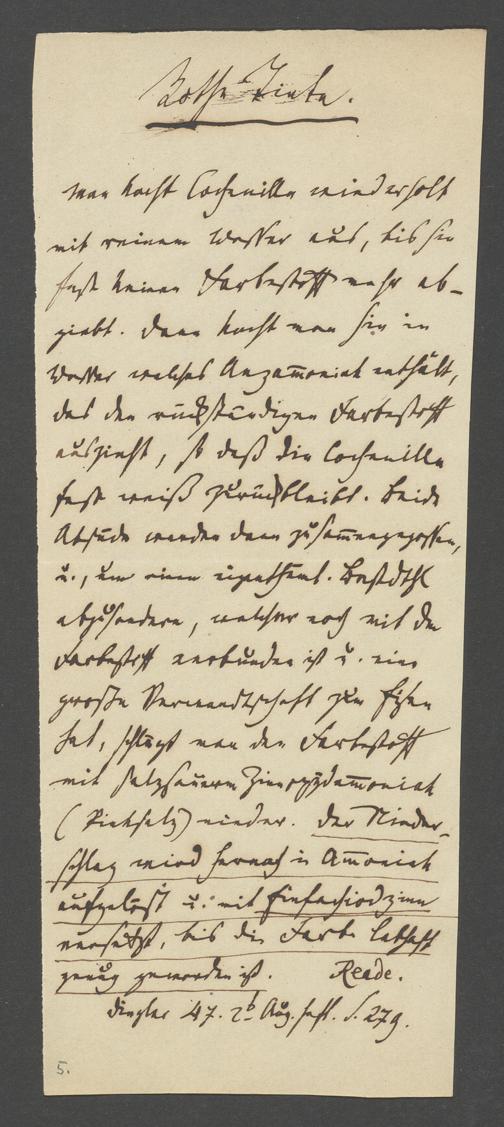 Rothe Tinte.
Man kocht Cochenille wiederholt
mit reinem Wasser aus, bis sie
fast keinen Farbestoff mehr ab-
giebt. Dann kocht man sie in
Wasser welches Aezamoniak enthält,
das den rückständigen Farbestoff
auszieht, so daß die Cochenille
fast weiß zurückbleibt. Beide
Absude werden dann zusammengegossen,
u., um einen eigenthüml. Bestdthl
abzusondern, welcher noch mit dem
Farbestoff verbunden ist u. eine
große Verwandtschaft zum Eisen
hat, schlägt man den Farbestoff
mit salzsaurem Zinnoxydamoniak
(Pinksalz) nieder. Der Nieder-
schlag wird hernach in Amoniak
aufgelöst u. mit Einfachiodzinn
versetzt, bis die Farbe lebhaft
genug geworden ist. Reade.
Dingler 47. 2t Aug. heft. S. 279.
5.